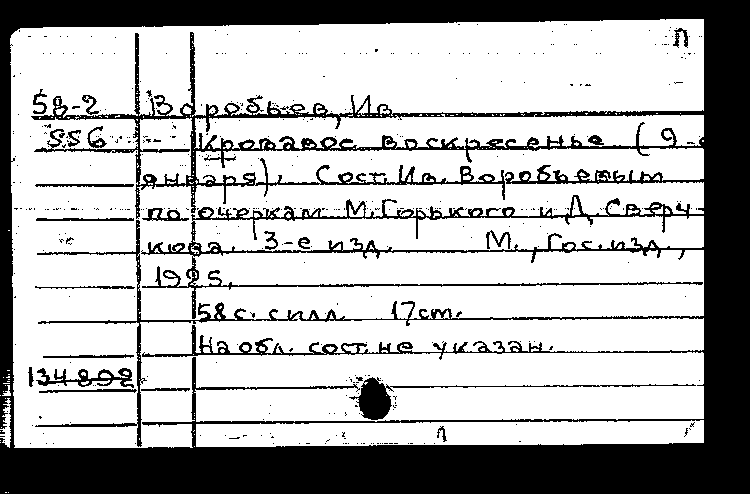 П
58-2 Воробьев, Ив
556 Кровавое воскресенье (9-е
января). Сост. Ив. Воробьевым
по очеркам М. Горького и Д. Сверч-
кова. 3-е изд. М., Гос. изд.,
1925.
58 с. с илл. 17 cm.
На обл. сост. не указан.
134892